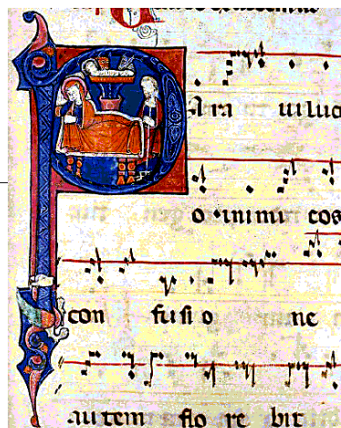 P ARA UILUC
o inimi cos
con fusi o ne
autem flo re bit